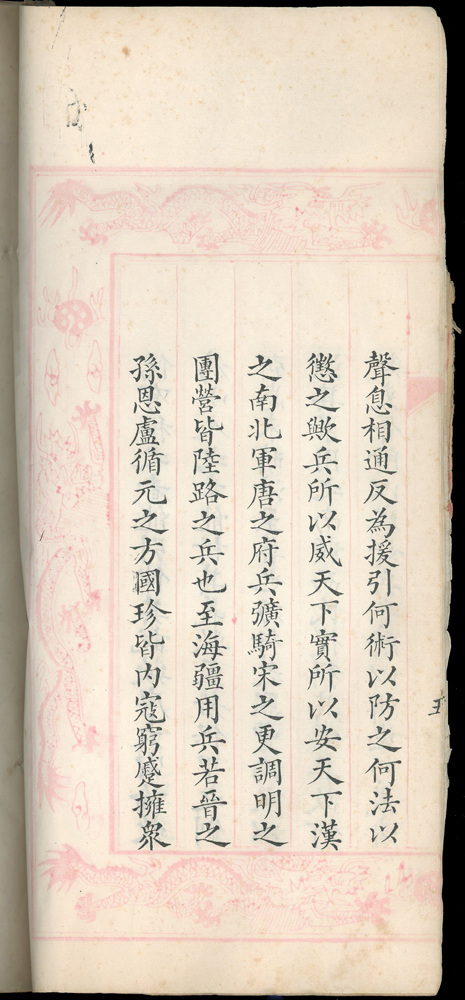 聲息相通反為援引何術以防之何法以
懲之歟兵所以威天下實所以安天下漢
之南北軍唐之府兵彍騎宋之更調明之
團營皆陸路之兵也至海疆用兵若晉之
孫恩盧循元之方國珍皆内寇窮蹙擁衆